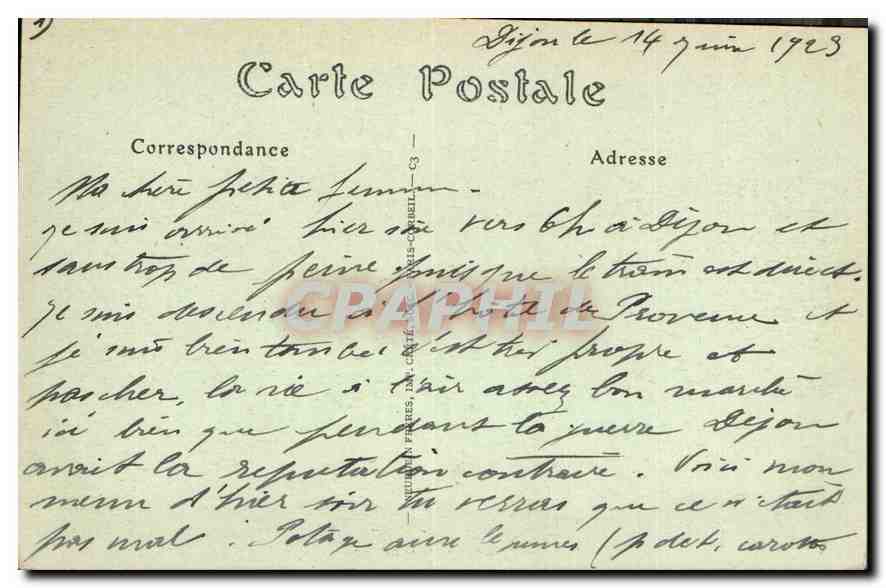 1)
Dijon le 14 juin 1923
Carte Postale
Correspondance
Adresse
Ma chère petite femme.
je suis arrivé hier soir vers 6h à Dijon et
sans trop de peine puisque le train est direct.
je suis descendu à l'hôtel de Provence et
je suis bien tombé c'est très propre et
pas cher, la vie à l'air assez bon marché
ici bien que pendant la guerre Dijon
avait la réputation contraire. Voici mon
menu d'hier soir tu verras que ce n'était
pas mal : Potage aux légumes (p. de t. carottes
FRÈRES, IMP. CRÉTÉ, PARIS-CORBEIL. — C3 —
CPAPHIL